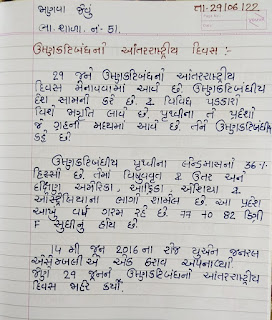 ભણવા જેવું
તા-29/06/22
ભા. શાળા. નં. 51.
ઉષ્ણકટિબંધનો આંતરરાષ્ટ્રીય દિવસ :-
29 જૂને ઉષ્ણકટિબંધનો આંતરરાષ્ટ્રીય
દિવસ મનાવવામાં આવે છે. ઉષ્ણકટિબંધીય
દેશ સામનો કરે છે. વિવિધ પડકારો
વિશે જાગૃતિ લાવે છે. પૃથ્વીના તે પ્રદેશો
જે ગ્રહની મધ્યમાં આવે છે. તેને ઉષ્ણકટિબંધ
કહે છે.
ઉષ્ણકટિબંધીય પૃથ્વીના લેન્ડમાસનો 36%
હિસ્સો છે. તેમાં વિષુવવૃત ઉત્તર અને
દક્ષિણ અમેરિકા, આફ્રિકા, એશિયા
ઓસ્ટ્રેલિયાના ભાગો શામેલ છે. આ પ્રદેશ
આખું વર્ષ ગરમ રહે છે. 77 to 82 ડિગ્રી
F સુધીનું હોય છે.
14 મી જૂન 2016 ના રોજ યુએન જનરલ
એસેમ્બલી એ એક ઠરાવ અપનાવ્યો
જેણે 29 જૂનને ઉષ્ણકટિબંધનો આંતરરાષ્ટ્રીય
દિવસ જાહેર કર્યો.